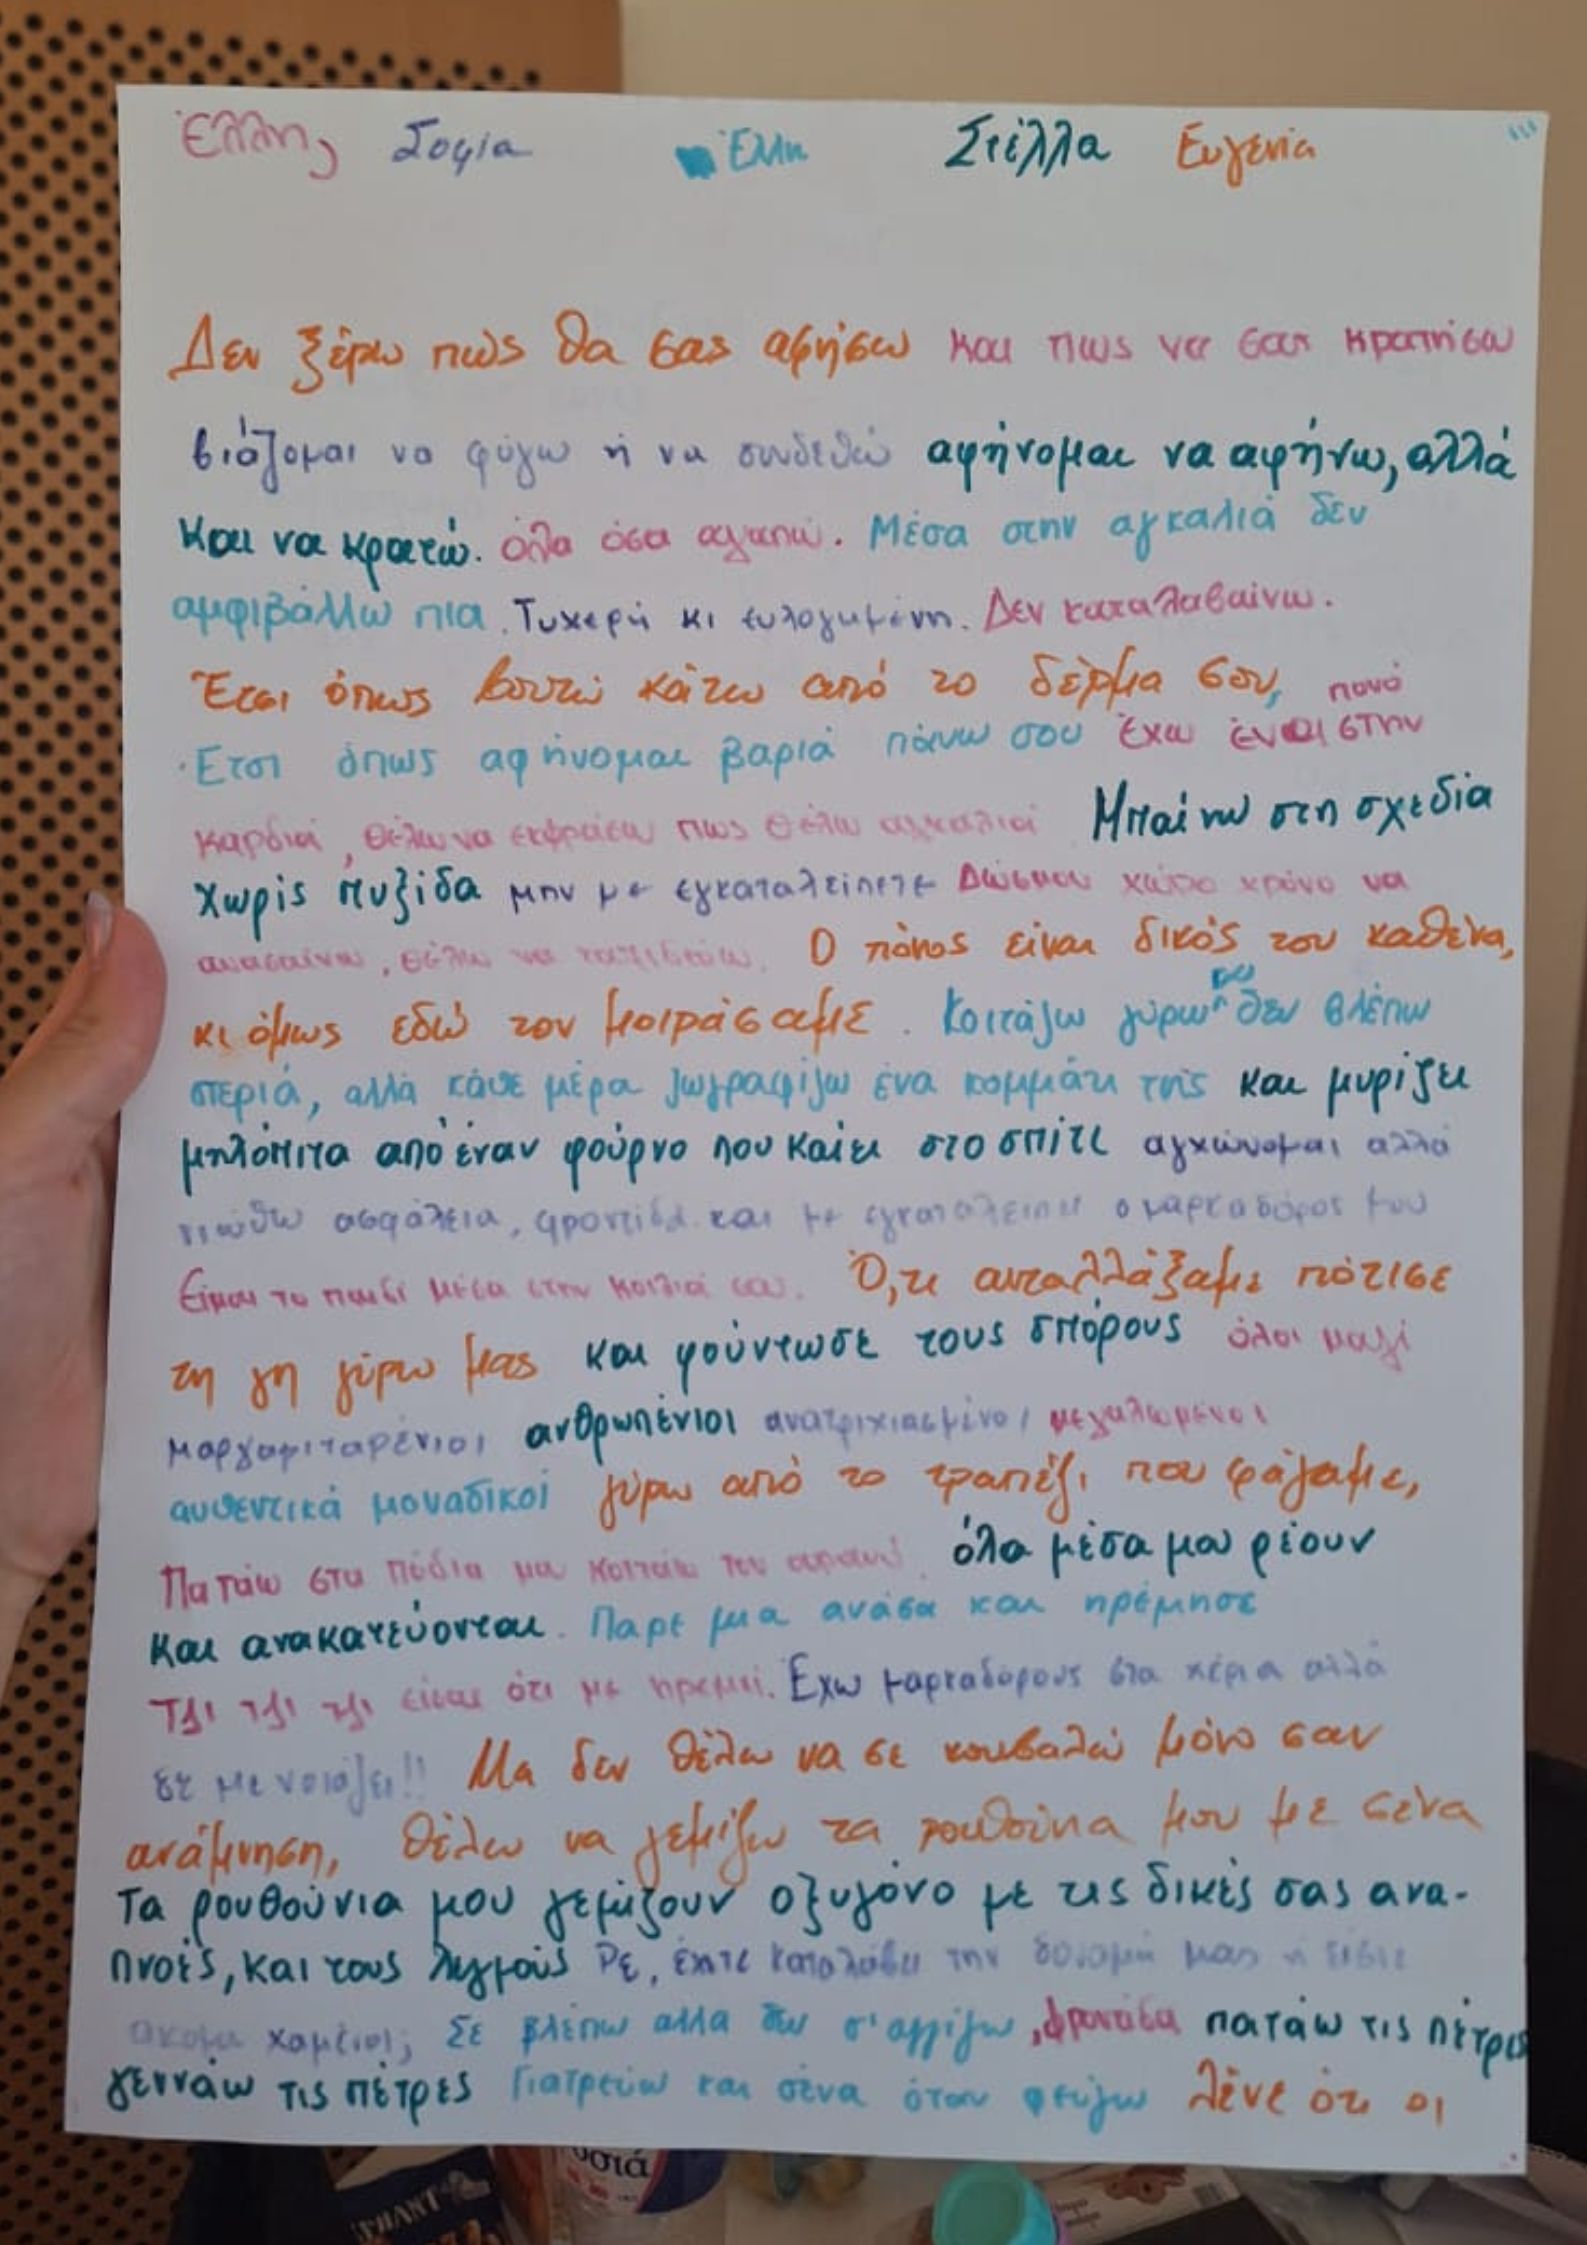 Έλλη, Σοφία Έλλη Στέλλα Ευγενία
Δεν ξέρω πώς θα σας αφήσω και πως να σας κρατήσω
βιάζομαι να φύγω ή να συνδεθώ αφήνομαι να αφήνω, αλλά
και να κρατώ. όλα όσα αγαπώ. Μέσα στην αγκαλιά δεν
αμφιβάλλω πια. Τυχερή κι ευλογημένη. Δεν καταλαβαίνω.
Έτσι όπως βουτώ κάτω από το δέρμα σου, πονό
Έτσι όπως αφήνομαι βαριά πάνω σου Έχω ένα στην
καρδιά, θέλω να εκφράσω πως θέλω αγκαλιά Μπαίνω στη σχεδία
χωρίς πυξίδα μην με εγκαταλείπετε Δώσμου χώρο χρόνο να
ανασαίνω, θέλω να ταξιδεύω. Ο πόνος είναι δικός του καθένα,
κι όμως εδώ τον μοιράσαμε. Κοιτάζω γύρω δεν βλέπω
στεριά, αλλά κάθε μέρα ζωγραφίζω ένα κομμάτι της και μυρίζει
μηλόπιτα από έναν φούρνο που καίει στο σπίτι αγχώνομαι αλλά
νιώθω ασφάλεια, φροντίδα και με εγκαταλείπει ο μαρκαδόρος μου
Είμαι το παιδί μέσα στην κοιλιά σας. Ό,τι ανταλλάξαμε πότισε
τη γη γύρω μας και φούντωσε τους σπόρους όλοι μαζί
μαργαριταρένιοι ανθρωπένιοι ανατριχιασμένοι μεγαλωμένοι
αυθεντικά μοναδικοί γύρω από το τραπέζι που φάγαμε,
Πατάω στα πόδια μου κοιτάω τον ουρανό όλα μέσα μου ρέουν
και ανακατεύονται. Παρε μια ανάσα και ηρέμησε
Τζι τζι τζι είσαι ότι με ηρεμεί. Έχω μαρκαδόρους στα χέρια αλλά
δε με νοιάζει!! Μα δεν θέλω να σε κουβαλώ μόνο σαν
ανάμνηση, θέλω να γεμίζω τα ρουθούνια μου με σένα
Τα ρουθούνια μου γεμίζουν οξυγόνο με τις δικές σας ανα-
πνοές, και τους λυγμούς Ρε, έχετε καταλάβει την δύναμή μας ή είστε
ακόμα χαμένοι; Σε βλέπω αλλα δεν σ'αγγίζω, φροντίδα πατάω τις πέτρες
γεννάω τις πέτρες Γιατρεύω και σένα όταν φεύγω λένε ότι οι